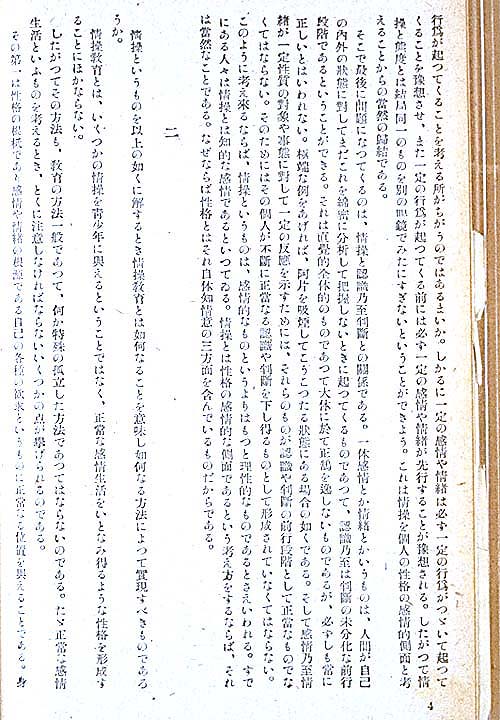 行爲が起つてくることを考える所がちがうのではあるまいか。しかるに一定の感情や情緒は必ず一定の行爲がつゞいて起つて
くることを豫想させ、また一定の行爲が起つてくる前には必ず一定の感情や情緒が先行することが豫想される。したがつて情
操と態度とは結局同一のものを別の眼鏡でみたにすぎないということができよう。これは情操を個人の性格の感情的側面と考
えることからの當然の歸結である。
そこで最後に問題になつてくるのは、情操と認識乃至判斷との關係である。一体感情とか情緒とかいうものは、人間が自己
の內外の狀態に對してまだこれを綿密に分析して把握しないときに起つてくるものであつて、認識乃至は判斷の未分化な前行
段階であるということができる。それは直覺的全体的のものであつて大体に於て正鵠を逸しないものであるが、必ずしも常に
正しいとはいわれない。極端な例をあげれば、阿片を吸煙してこうこつたる狀態にある場合の如くである。そして感情乃至情
緒が一定性質の對象や事態に對して一定の反應を示すためには、それらのものが認識や判斷の前行段階として正常なものでな
くてはならない。そのためにはその個人が不斷に正常なる認識や判斷を下し得るものとして形成されていなくてはならない。
このように考え來るならば、情操というものは、感情的なものというよりはもつと理性的なものであるとさえいわれる。すで
にある人々は情操とは知的な感情であるといつている。情操とは性格の感情的な側面であるという考え方をするならば、それ
は當然なことである。なぜならば性格とはそれ自体知情意の三方面を含んでいるものだからである。
二
情操というものを以上の如くに解するとき情操教育とは如何なることを意味し如何なる方法によつて實現すべきものであろ
うか。
情操教育とは、いくつかの情操を靑少年に與えるということではなく、正常な感情生活をいとなみ得るような性格を形成す
ることにほかならない。
したがつてその方法も、敎育の方法一般であつて、何か特殊の孤立した方法であつてはならないのである。たゞ正常な感情
生活といふものを考えるとき、とくに注意しなければならないいくつかの点が擧げられるのである。
その第一は性格の根柢である感情や情緒の根源である自己の各種の欲求というものに正常なる位置を與えることである。身
4